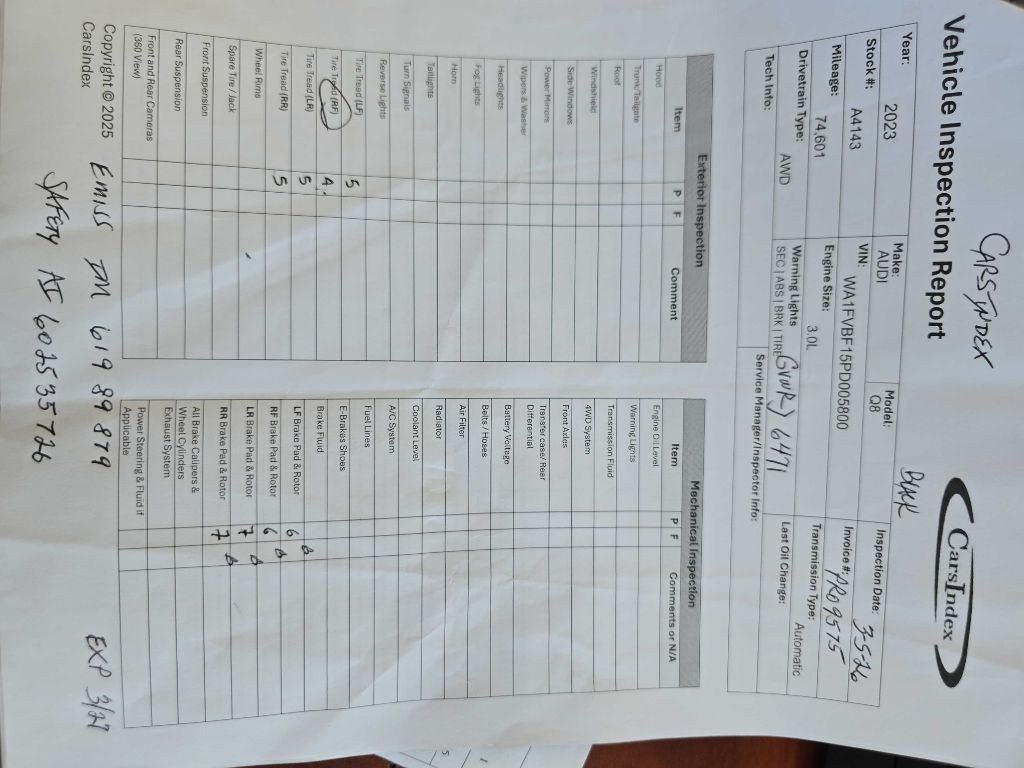 CARSINDEX
Vehicle Inspection Report
CarsIndex
Year: 2023 Make: AUDI Model: Q8 Inspection Date: 3-5-26
Stock #: A4143 VIN: WA1FVBF15PD005800 Invoice #: PRO9575
Mileage: 74,601 Engine Size: 3.0L Transmission Type: Automatic
Drivetrain Type: AWD Warning Lights SEC | ABS | BRK | TIRE GVWR) 6471 Last Oil Change:
Tech Info: Service Manager/Inspector Info:
Exterior Inspection
Item P F Comment
Hood
Trunk/Tailgate
Roof
Windshield
Side Windows
Power Mirrors
Wipers & Washer
Headlights
Fog Lights
Horn
Taillights
Turn Signals
Reverse Lights
Tire Tread (LF) 5
Tire Tread (RF) 4
Tire Tread (LR) 5
Tire Tread (RR) 5
Spare Tire / Jack
Wheel Rims
Front Suspension
Rear Suspension
Front and Rear Cameras
(360 View)
Mechanical Inspection
Item P F Comments or N/A
Engine Oil Level
Warning Lights
Transmission Fluid
4WD System
Front Axles
Transfer case/ Rear
Differential
Battery Voltage
Belts / Hoses
Air Filter
Radiator
Coolant Level
A/C System
Fuel Lines
E-Brakes Shoes
Brake Fluid
LF Brake Pad & Rotor 6
RF Brake Pad & Rotor 6
LR Brake Pad & Rotor 7
RR Brake Pad & Rotor 7
All Brake Calipers &
Wheel Cylinders
Exhaust System
Power Steering & Fluid if
Applicable
Copyright © 2025
CarsIndex
EMISS DM 619 89 879 EXP 3/27
SAFETY AI 602535726